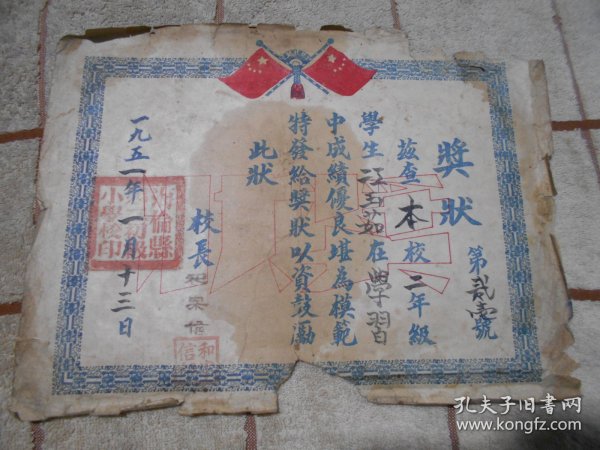 獎狀
第貳號
茲查本校二年級
學生汪玉茹在學習
中成績優良堪為模範
特發給獎狀以資鼓勵
此狀
校長
和信
一九五一年一月十三日
海倫縣
小學校印
孔夫子旧书网
www.kongfz.com